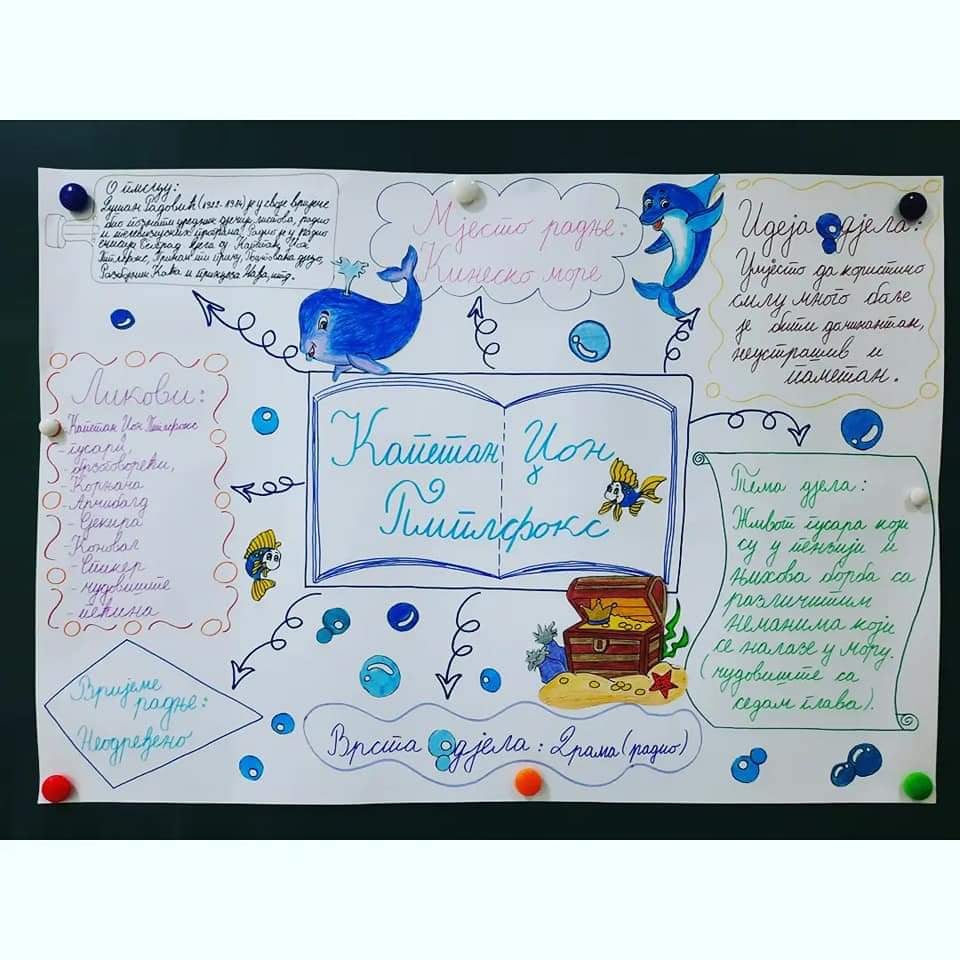 О писцу:
Душан Радовић (1922-1984) је у своје вријеме
био познати уредник дјечиј листова, радио
и телевизијских програма. Радио је у радио
Београд
су Капетан Џон
Пиплфокс, Причам ти причу, Поштована дјецо,
и
Мјесто радње:
Кинеско море
Идеја дјела:
Умјесто да користимо
силу много боље
је бити доминантан,
неустрашив и
паметан.
Ликови:
- Капетан Џон Пиплфокс
- гусари,
- Корњача
- Арчибалд
- Сјекира
- Коновал
- Спикер
- чудовиште
- пећина
Капетан Џон
Пиплфокс
Тема дјела:
Живот гусара који
су у пензији и
њихова борба са
различитим
неманима које
се налазе у мору.
(чудовиште са
седам глава).
Вријеме
радње:
Неодређено
Врста дјела: Драма (радио)